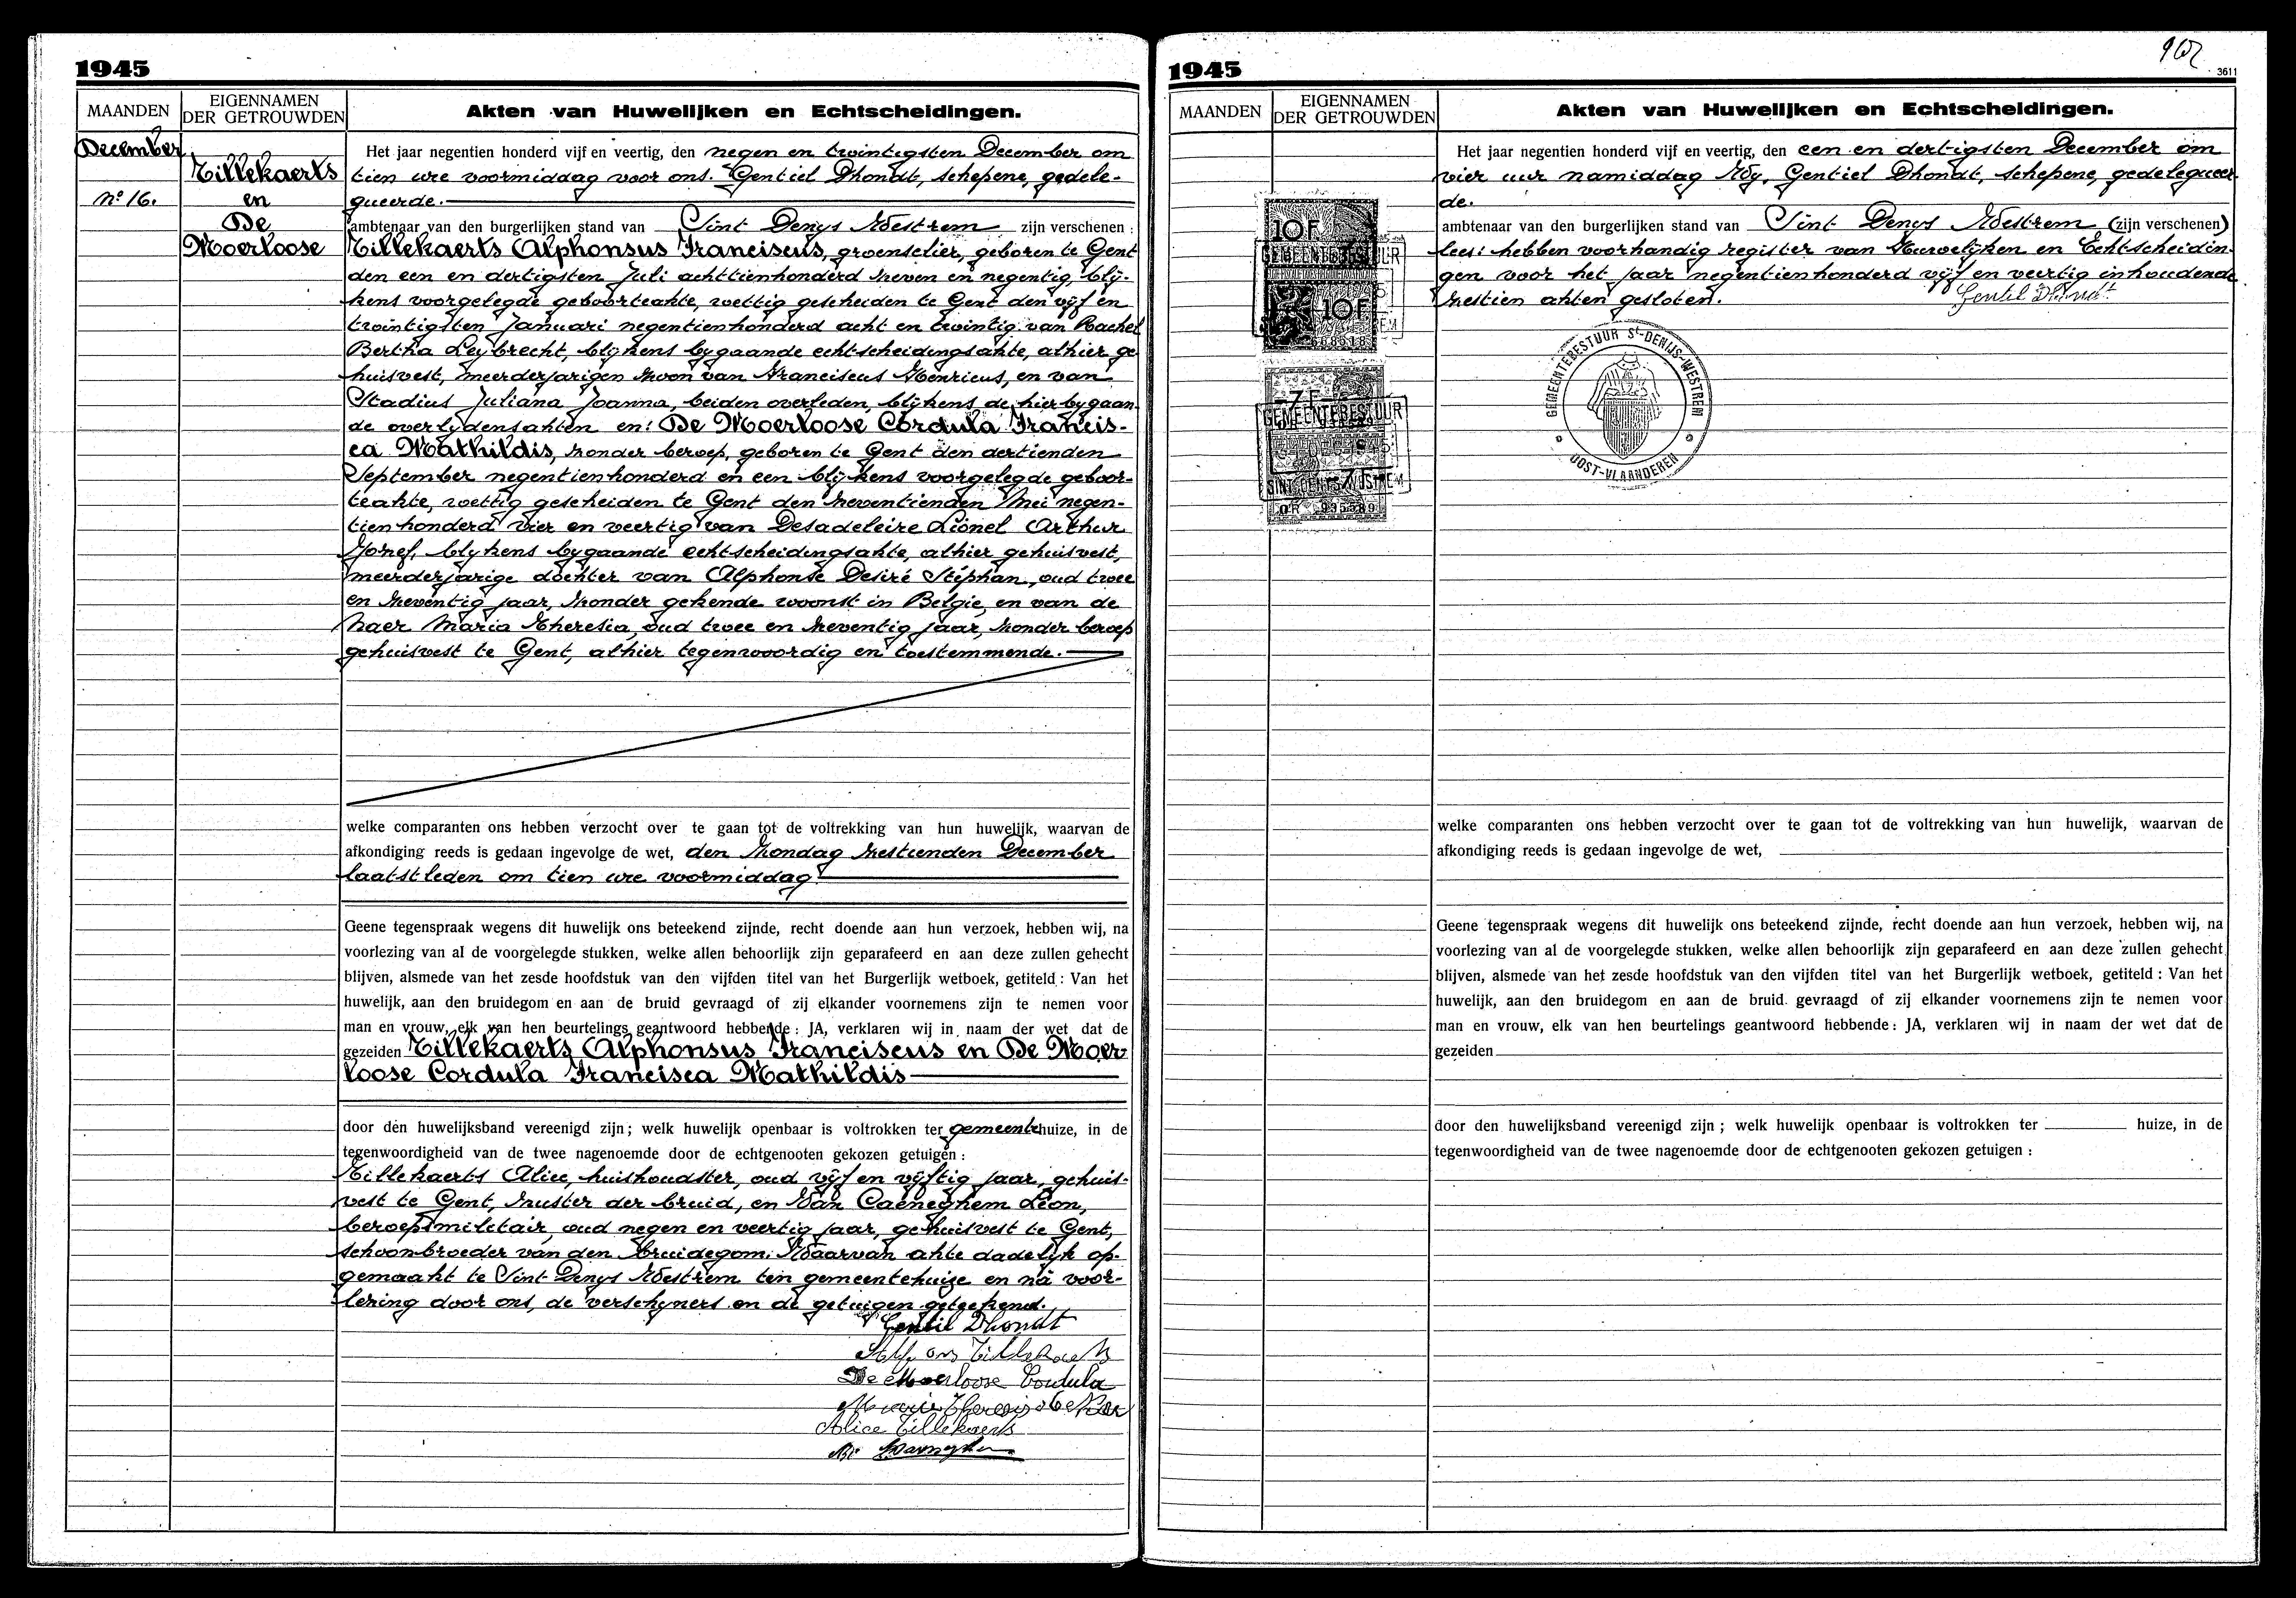 1945
MAANDEN
EIGENNAMEN
DER GETROUWDEN
Akten van Huwelijken en Echtscheidingen.
December
Tillekaerts
nº 16.
en
De
Moerloose
Het jaar negentien honderd vijf en veertig, den negen en twintigsten December om
tien ure voormiddag voor ons. Gentiel Dhondt, schepene, gedele-
gueerde.
ambtenaar van den burgerlijken stand van Sint Denys Westrem zijn verschenen :
Tillekaerts Alphonsus Franciscus, groenselier, geboren te Gent
den een en dertigsten Juli achttienhonderd zeven en negentig, blij-
kens voorgelegde geboorteakte, wettig gescheiden te Gent den vijf en
twintigsten Januari negentienhonderd acht en twintig van Rachel
Bertha Leybrecht, blijkens bygaande echtscheidingsakte, alhier ge
huisvest, meerderjarigen zoon van Franciscus Henricus, en van
Stadius Juliana Joanna, beiden overleden, blijkens de hierbygaan
de overlydensakten en: De Moerloose Cordula Francis-
ca Mathildis, zonder beroep, geboren te Gent den dertienden
September negentienhonderd en een blijkens voorgelegde geboor-
teakte, wettig gescheiden te Gent den zeventienden Mei negen-
tienhonderd vier en veertig van Desadeleire Lionel Arthur
Jozef, blykens bygaande echtscheidingsakte, alhier gehuisvest,
meerderjarige dochter van Alphonse Desiré Stéphan, oud twee
en zeventig jaar, zonder gekende woonst in Belgie, en van de
Naer Maria Theresia, oud twee en zeventig jaar, zonder beroep
gehuisvest te Gent, alhier tegenwoordig en toestemmende.
welke comparanten ons hebben verzocht over te gaan tot de voltrekking van hun huwelijk, waarvan de
afkondiging reeds is gedaan ingevolge de wet, den Zondag zestienden December
laatstleden om tien ure voormiddag
Geene tegenspraak wegens dit huwelijk ons beteekend zijnde, recht doende aan hun verzoek, hebben wij, na
voorlezing van al de voorgelegde stukken, welke allen behoorlijk zijn geparafeerd en aan deze zullen gehecht
blijven, alsmede van het zesde hoofdstuk van den vijfden titel van het Burgerlijk wetboek, getiteld : Van het
huwelijk, aan den bruidegom en aan de bruid gevraagd of zij elkander voornemens zijn te nemen voor
man en vrouw, elk van hen beurtelings geantwoord hebbende : JA, verklaren wij in naam der wet dat de
gezeiden Tillekaerts Alphonsus Franciscus en De Moer
loose Cordula Francisca Mathildis
door den huwelijksband vereenigd zijn ; welk huwelijk openbaar is voltrokken ter gemeentehuize, in de
tegenwoordigheid van de twee nagenoemde door de echtgenooten gekozen getuigen :
Tillekaerts Alice, huishoudster, oud vijf en vijftig jaar, gehuis-
vest te Gent, zuster der bruid, en Van Caeneghem Léon,
beroepsmilitair, oud negen en veertig jaar, gehuisvest te Gent,
schoonbroeder van den bruidegom. Waarvan akte dadelijk op-
gemaakt te Sint-Denys Westrem ten gemeentehuize en na voor-
lezing door ons, de verschyners en de getuigen geteekend.
Gentil Dhondt
Alfons Tillekaerts
De Moerloose Cordula
Marie Theresia de Naer
Alice Tillekaerts
1945
902
3611
MAANDEN
EIGENNAMEN
DER GETROUWDEN
Akten van Huwelijken en Echtscheidingen.
Het jaar negentien honderd vijf en veertig, den een en dertigsten December om
vier uur namiddag Wy, Gentiel Dhondt, schepene, gedelegueer
de.
ambtenaar van den burgerlijken stand van Sint Denys Westrem (zijn verschenen)
lees: hebben voorhandig register van Huwelijken en Echtscheidin-
gen voor het jaar negentienhonderd vijf en veertig inhoudende
zestien akten gesloten. Gentil Dhondt
10F
GEMEENTEBESTUUR
10F
7F
GEMEENTEBESTUUR
DEC 1945
SINT DENYS WESTREM
7F
GEMEENTEBESTUUR St-DENIJS-WESTREM
OOST-VLAANDEREN
welke comparanten ons hebben verzocht over te gaan tot de voltrekking van hun huwelijk, waarvan de
afkondiging reeds is gedaan ingevolge de wet,
Geene tegenspraak wegens dit huwelijk ons beteekend zijnde, recht doende aan hun verzoek, hebben wij, na
voorlezing van al de voorgelegde stukken, welke allen behoorlijk zijn geparafeerd en aan deze zullen gehecht
blijven, alsmede van het zesde hoofdstuk van den vijfden titel van het Burgerlijk wetboek, getiteld : Van het
huwelijk, aan den bruidegom en aan de bruid gevraagd of zij elkander voornemens zijn te nemen voor
man en vrouw, elk van hen beurtelings geantwoord hebbende : JA, verklaren wij in naam der wet dat de
gezeiden
door den huwelijksband vereenigd zijn ; welk huwelijk openbaar is voltrokken ter huize, in de
tegenwoordigheid van de twee nagenoemde door de echtgenooten gekozen getuigen :